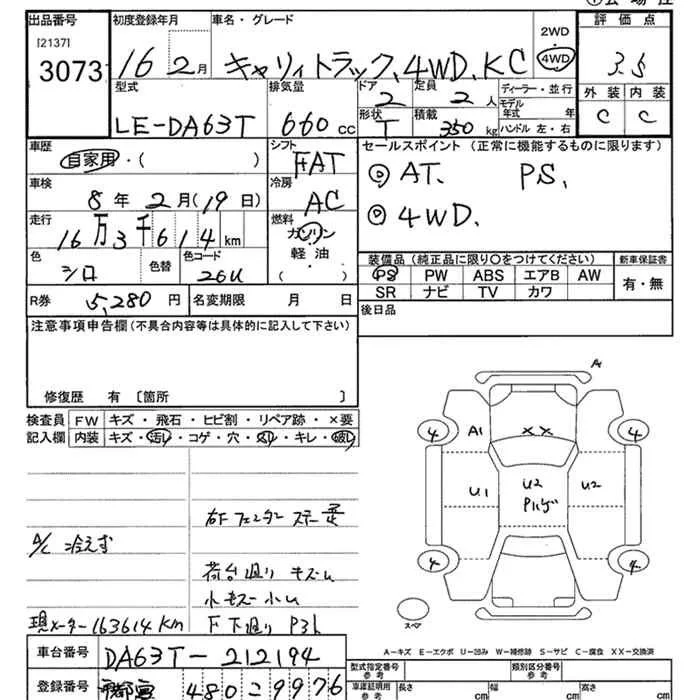 出品番号
[2137]
3073
初度登録年月
16 2月
車名・グレード
キャリィトラック、4WD、KC
2WD
4WD
評価点
3.5
外装 内装
C C
型式
LE-DA63T
排気量
660 cc
ドア
2
定員
2 人
形状
T
積載
350 kg
ディーラー・並行
モデル年式 年
ハンドル 左・右
車歴
自家用・( )
シフト
FAT
セールスポイント(正常に機能するものに限ります)
◎ AT、 PS、
◎ 4WD、
車検
8年 2月(19日)
冷房
AC
走行
16万3千614km
燃料
ガソリン
軽油
( )
色
シロ
色替
色コード
26U
装備品(純正品に限り○をつけてください)
PS PW ABS エアB AW
SR ナビ TV カワ
新車保証書
有・無
R券 5,280円
名変期限 月 日
後日品
注意事項申告欄(不具合内容等は具体的に記入して下さい)
修復歴 有 [箇所 ]
検査員記入欄
FW キズ・飛石・ヒビ割・リペア跡・×要
内装 キズ・汚レ・コゲ・穴・スリ・キレ・破レ
右Fフェンダー ステー歪
A/C 冷えず
荷台廻り キズU
小キズ小U
現メーター163614Km
下廻り
A
4 A1 XX 4
U1 U2 U2
Pハゲ
4 4
スペア
A-キズ E-エクボ U-凹み W-補修跡 S-サビ C-腐食 XX-交換済
車台番号 DA63T-212194
登録番号 480 2 9976
型式指定番号参考
類別区分番号参考
車庫証明用参考 長さ cm 幅 cm 高さ cm